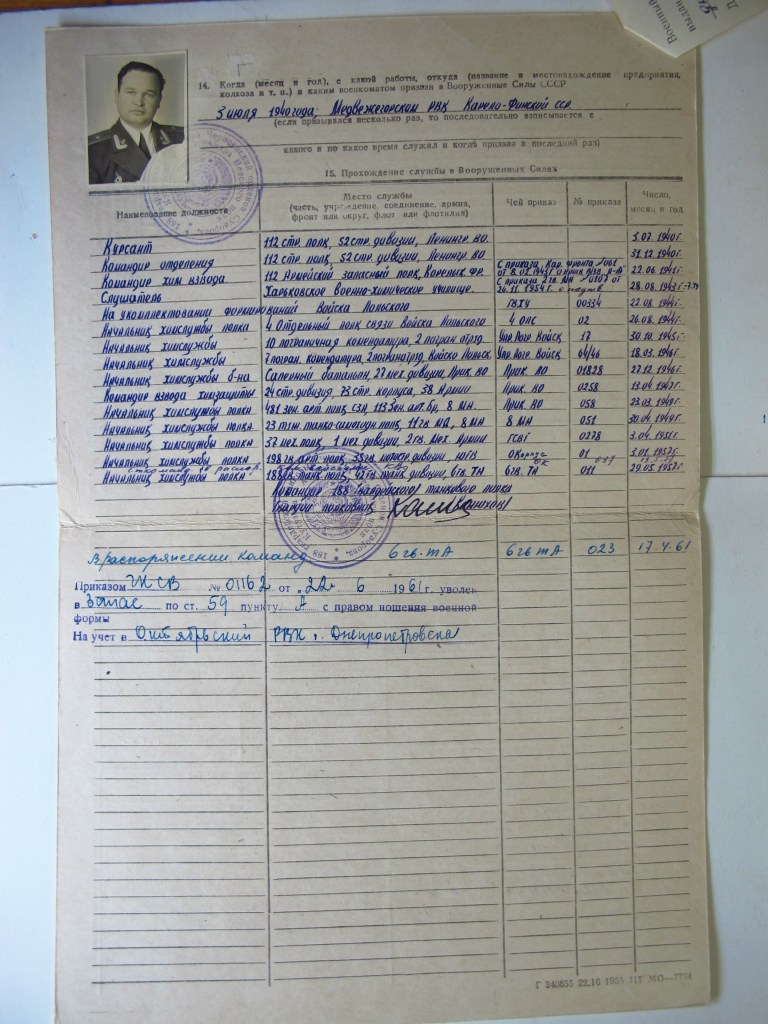 Военный
выдан
14. Когда (месяц и год), с какой работы, откуда (название и местонахождение предприятия,
колхоза и т. п.) и каким военкоматом призван в Вооруженные Силы СССР
3 июля 1940 года; Медвежегорским РВК Карело-Финской сср
(если призывался несколько раз, то последовательно вписывается, с
какого и по какое время служил и когда призван в последний раз)
15. Прохождение службы в Вооруженных Силах
Наименование должности
Место службы
(часть, учреждение, соединение, армия,
фронт или округ, флот или флотилия)
Чей приказ
№ приказа
Число,
месяц и год
Курсант 112 стр. полк, 52 стр. дивизии, Ленингр. ВО. 3.07.1940г.
Командир отделения 112 стр. полк, 52 стр. дивизии, Ленингр. ВО. 31.12.1940г.
Командир хим взвода 112 Армейский запасный полк, Карельск. фр. 22.06.1941г.
Слушатель Харьковское военно-химическое училище. 28.08.1943г.
На укомплектовании формирований Войска Польского ГВХУ 00334 22.08.1944г.
Начальник химслужбы полка 4 Отдельный полк связи Войска Польского 4 ОПС 02 26.08.1944г.
Начальник химслужбы 10 пограничная комендатура, 2 погран отряд. Упр. Погр. Войск 17 30.10.1945г.
Начальник химслужбы 7 погран. комендатура, 2 погранотряд, Войско Польск. Упр. Погр. Войск 04/46 18.03.1946г.
Начальник химслужбы б-на Саперный батальон, 27 мех. дивизии, Прик. ВО Прик. ВО 01828 27.12.1946г.
Командир взвода химзащиты 24 стр. дивизия, 73 стр. корпуса, 38 Армии Прик. ВО 0258 13.04.1947г.
Начальник химслужбы полка 481 зен. арт. полк СЗА, 113 зен. арт. бр, 8 МА. Прик. ВО 058 23.03.1948г.
Начальник химслужбы полка 23 тяж. танко-самоходн. полк, 11 гв. МД, 8 МА. 8 МА 051 30.04.1949г.
Начальник химслужбы полка 37 мех. полк, 1 мех. дивизии, 2 гв. Мех Армии ГСВГ 0278 3.04.1951г.
Начальник химслужбы полка 01 3.01.1957г.
Начальник химслужбы полка 188 гв. танк. полк, 42 гв. танк. дивизии, 6 гв. ТА 6 гв. ТА 011 29.05.1957г.
Командир 188 Гвардейского танкового полка
Гвардии полковник
В распоряжении команд. 6 гв. тА 6 гв тА 023 17.4.61
Приказом ГК СВ № 01162 от „22“ 6 1961 г. уволен
в Запас по ст. 59 пункту А с правом ношения военной
формы
На учет в Октябрьский РВК г. Днепропетровска
Г 340855 22.10 1955